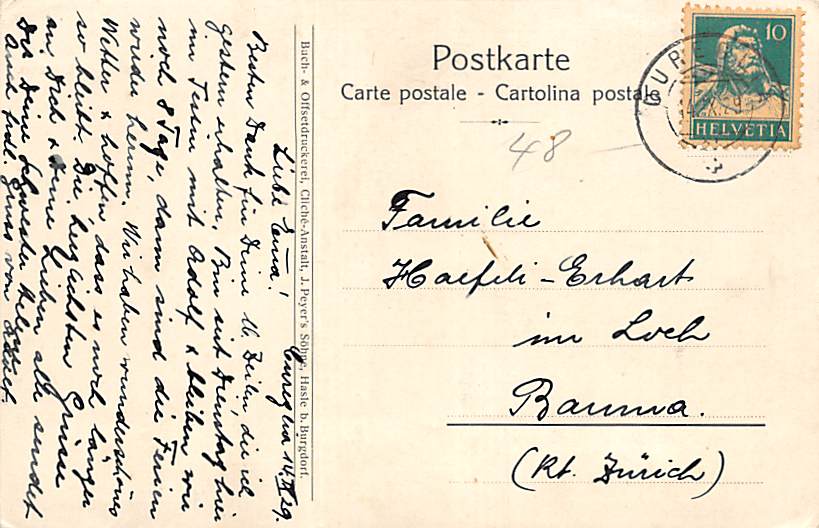 Postkarte
Carte postale - Cartolina postale
10
HELVETIA
CURE
48
Familie
Haefeli-Erhart
im Loch
Bauma.
(Kt. Zürich)
Buch- & Offsetdruckerei, Cliché-Anstalt, J. Peyer's Söhne, Hasle b. Burgdorf.
Cureglia 14. IX 29.
Liebe Erna!
Besten Dank für Deine lb. Zeilen die ich
gestern erhalten. Bin seit Dienstag hier
im Tessin mit Adolf & bleiben wir
noch 8 Tage, dann sind die Ferien
wieder herum. Wir haben wunderschönes
Wetter & hoffen dass es noch länger
so bleibt. Die herzlichsten Grüsse
an Dich & Deine Lieben alle sendet
Dir Deine Schwester
Auch frdl. Gruss von Adolf.